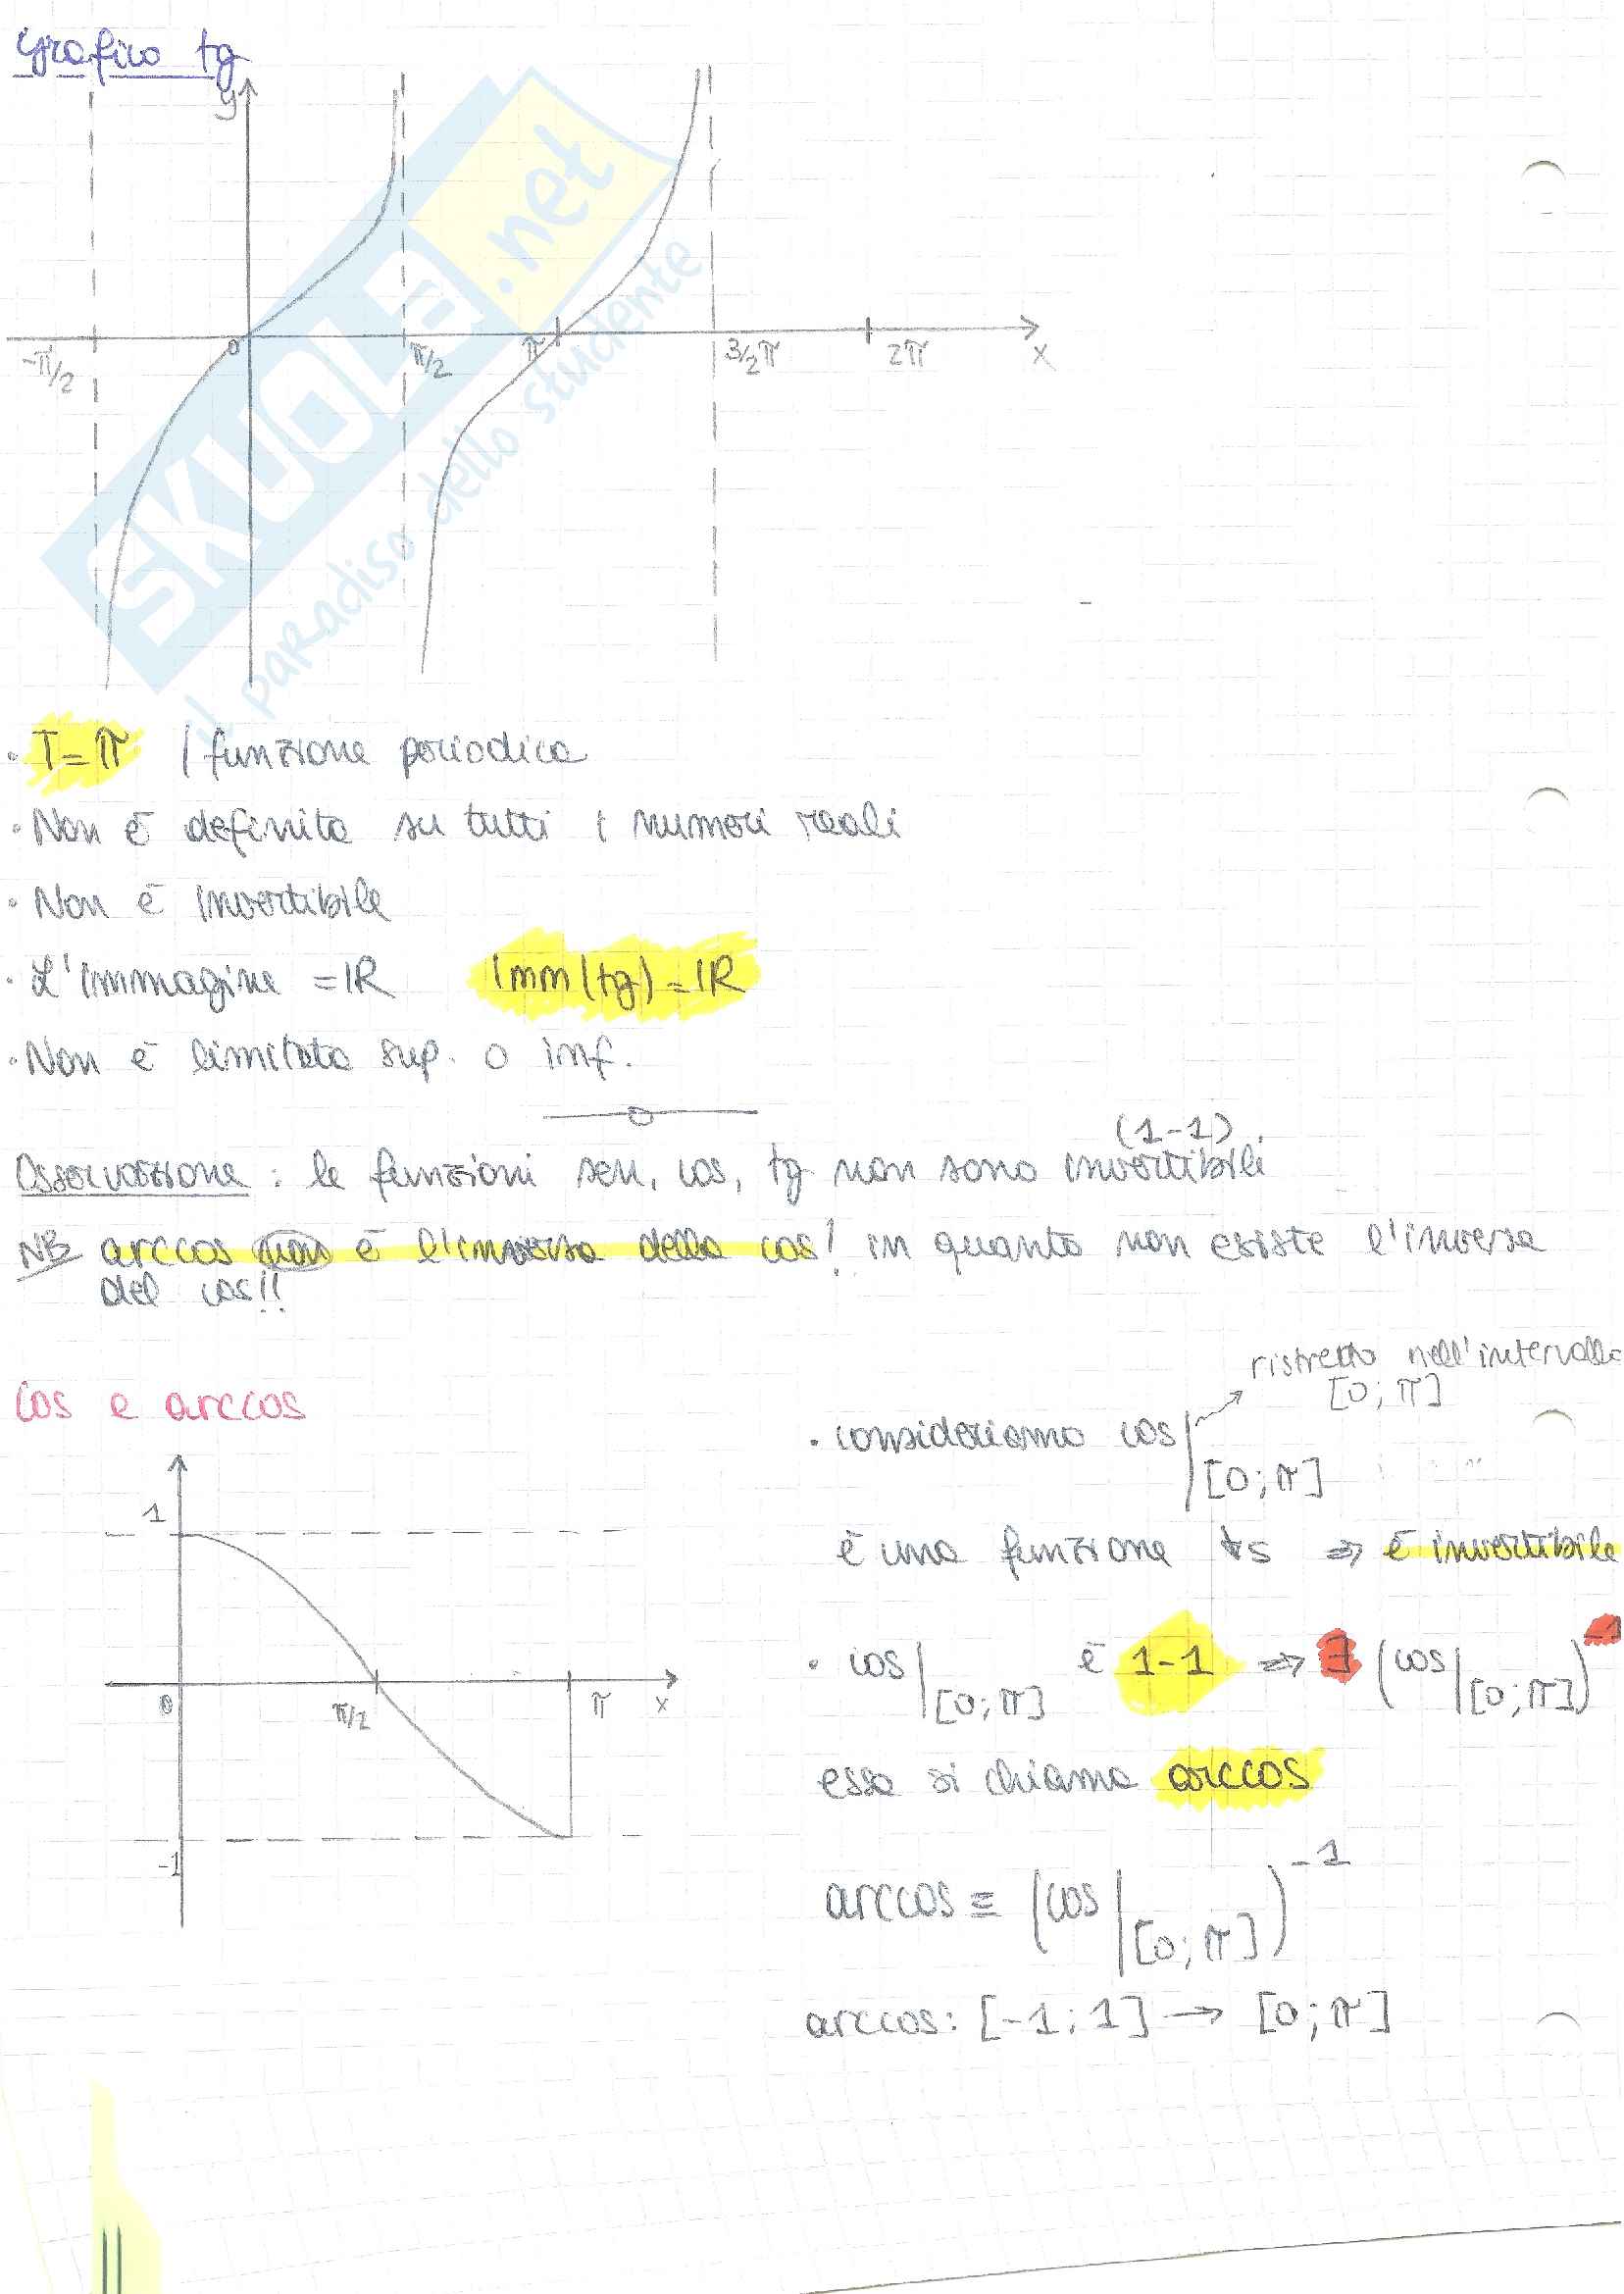 Grafico tg
y
-π/2
0
π/2
π
3/2π
2π
x
SKUOLA.net
il paradiso dello studente
• T=π / funzione periodica
• Non è definita su tutti i numeri reali
• Non è invertibile
• L'immagine = IR Imm(tg) = IR
• Non è limitata sup. o inf.
(1-1)
Osservazione: le funzioni sen, cos, tg non sono invertibili
NB arccos non è l'inversa della cos! in quanto non esiste l'inversa
del cos!!
cos e arccos
1
0
π/2
π
x
-1
ristretto nell'intervallo
[0; π]
• consideriamo cos|[0; π]
è una funzione ⇒ è invertibile
• cos|[0; π] è 1-1 ⇒ ∃ (cos|[0; π])⁻¹
essa si chiama arccos
arccos ≡ (cos|[0; π])⁻¹
arccos: [-1; 1] → [0; π]